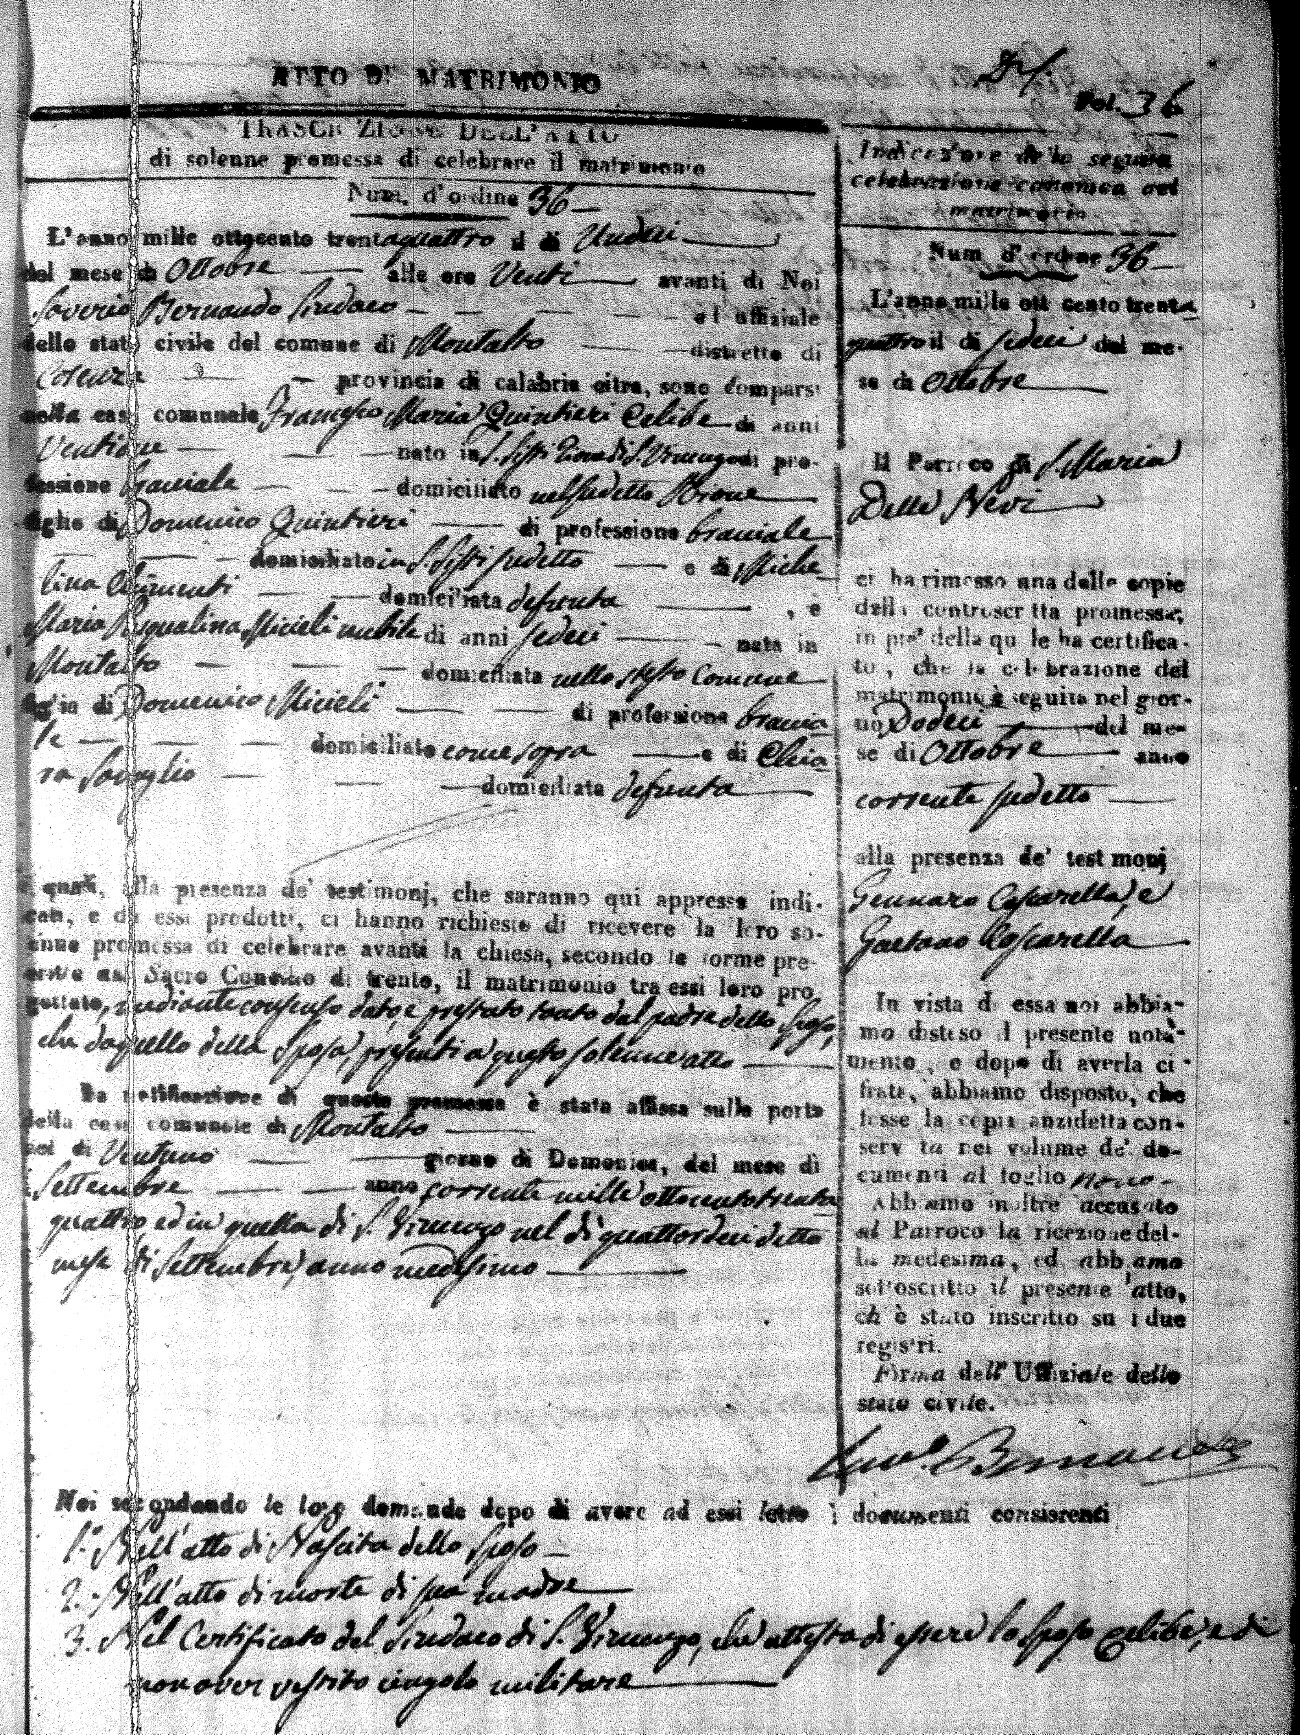 ATTO DI MATRIMONIO
Fol. 36
TRASCRIZIONE DELL'ATTO
di solenne promessa di celebrare il matrimonio
Num. d'ordine 36
L'anno mille ottocento trentaquattro il dì Undeci
del mese di Ottobre alle ore Venti avanti di Noi
Saverio Bernaudo Sindaco ed uffiziale
dello stato civile del comune di Montalto distretto di
Cosenza provincia di calabria citra, sono comparsi
nella casa comunale Francesco Maria Quintieri Celibe di anni
nato in S. Sisti di S. Vincenzo di pro-
fessione bracciale domiciliato nel sudetto
figlio di Domenico Quintieri di professione bracciale
domiciliato in S. Sisti sudetto e di Miche
lina Chimenti domiciliata defunta , e
Maria Pasqualina Micieli nubile di anni sedeci nata in
Montalto domiciliata nello stesso Comune
figlia di Domenico Micieli di professione braccia
le domiciliato come sopra e di Chia
ra domiciliata defunta
i quali, alla presenza de' testimonj, che saranno qui appresso indi-
cati, e da essi prodotti, ci hanno richiesto di ricevere la loro so-
lenne promessa di celebrare avanti la chiesa, secondo le forme pre-
scritte dal Sacro Concilio di trento, il matrimonio tra essi loro pro
gettato, mediante consenso dato, e prestato tanto dal padre dello sposo,
che da quello della sposa, presenti a questo solenne atto
La notificazione di questa promessa è stata affissa sulla porta
della casa comunale di Montalto
nel di Ventuno giorno di Domenica, del mese di
Settembre anno corrente mille ottocento trenta
quattro ed in quella di S. Vincenzo nel dì quattordeci detto
mese di Settembre, anno medesimo
Indicazione della seguita
celebrazione canonica del
matrimonio
Num d'ordine 36
L'anno mille ottocento trenta
quattro il di sedeci del me-
se di Ottobre
Il Parroco di S. Maria
Della Nevi
ci ha rimesso una delle copie
della controscritta promessa;
in piè della quale ha certifica-
to, che la celebrazione del
matrimonio è seguita nel gior-
no Dodeci del me-
se di Ottobre anno
corrente sudetto
alla presenza de' testimonj
Gennaro Coscarella, e
Gaetano Coscarella
In vista di essa noi abbia-
mo disteso il presente nota-
mento, e dopo di averla ci-
frata, abbiamo disposto, che
fosse la copia anzidetta con-
servata nel volume de' do-
cumenti al foglio nono
Abbiamo inoltre accusato
al Parroco la ricezione del-
la medesima, ed abbiamo
sottoscritto il presente atto,
ch' è stato inscritto su i due
registri.
Firma dell' Uffiziale dello
stato civile.
Sav.o Bernaudo
Noi secondando le loro domande dopo di avere ad essi letto i documenti consistenti
1.° Nell'atto di Nascita dello sposo
2. Nell'atto di morte di sua madre
3. Nel Certificato del Sindaco di S. Vincenzo, che attesta di essere lo sposo celibe, e di
non aver vestito cingolo militare